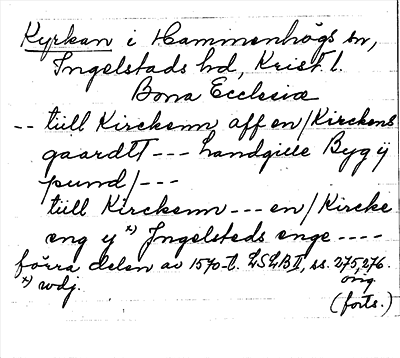 Kyrkan i Hammenhögs sn,
Ingelstads hd, Krist. l.
Bona Ecclesiæ
-- tiill Kirckenn aff en/Kirckens
gaardtt --- Landgille Byg ij
pund/---
tiill Kirckenn --- en/Kircke
eng y *) Ingelsteds enge ----
förra delen av 1570-t. LSLB II, ss. 275, 276.
*) wdj. orig.
(forts.)